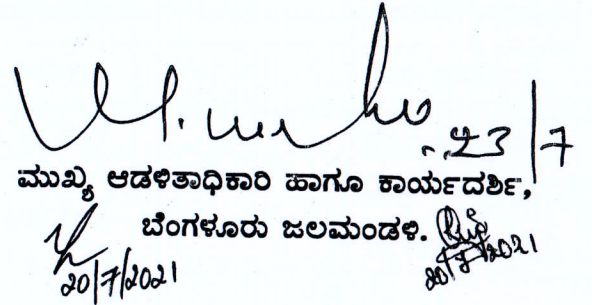 23/7
ಮುಖ್ಯ ಆಡಳಿತಾಧಿಕಾರಿ ಹಾಗೂ ಕಾರ್ಯದರ್ಶಿ,
ಬೆಂಗಳೂರು ಜಲಮಂಡಳಿ.
20/7/2021 20/7/2021